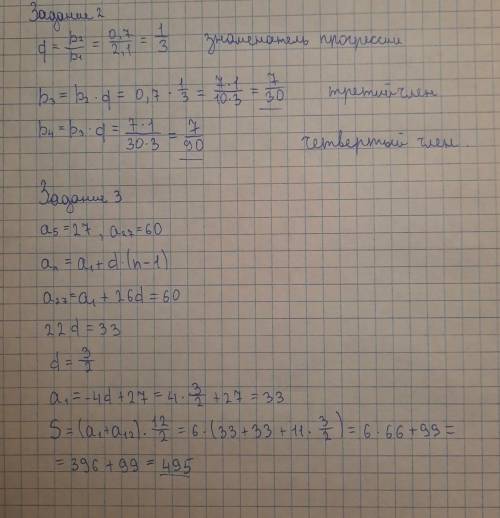 Задание 2
q = b₂/b₁ = 0,7/2,1 = 1/3 знаменатель прогрессии
b₃ = b₂ · q = 0,7 · 1/3 = 7·1/10·3 = 7/30 третий член
b₄ = b₃ · q = 7·1/30·3 = 7/90 четвертый член.
Задание 3
a₅ = 27, a₂₇ = 60
aₙ = a₁ + d·(n-1)
a₂₇ = a₁ + 26d = 60
22d = 33
d = 3/2
a₁ = -4d + 27 = 4 · 3/2 + 27 = 33
S = (a₁ + a₁₂) · 12/2 = 6 · (33 + 33 + 11 · 3/2) = 6 · 66 + 99 =
= 396 + 99 = 495